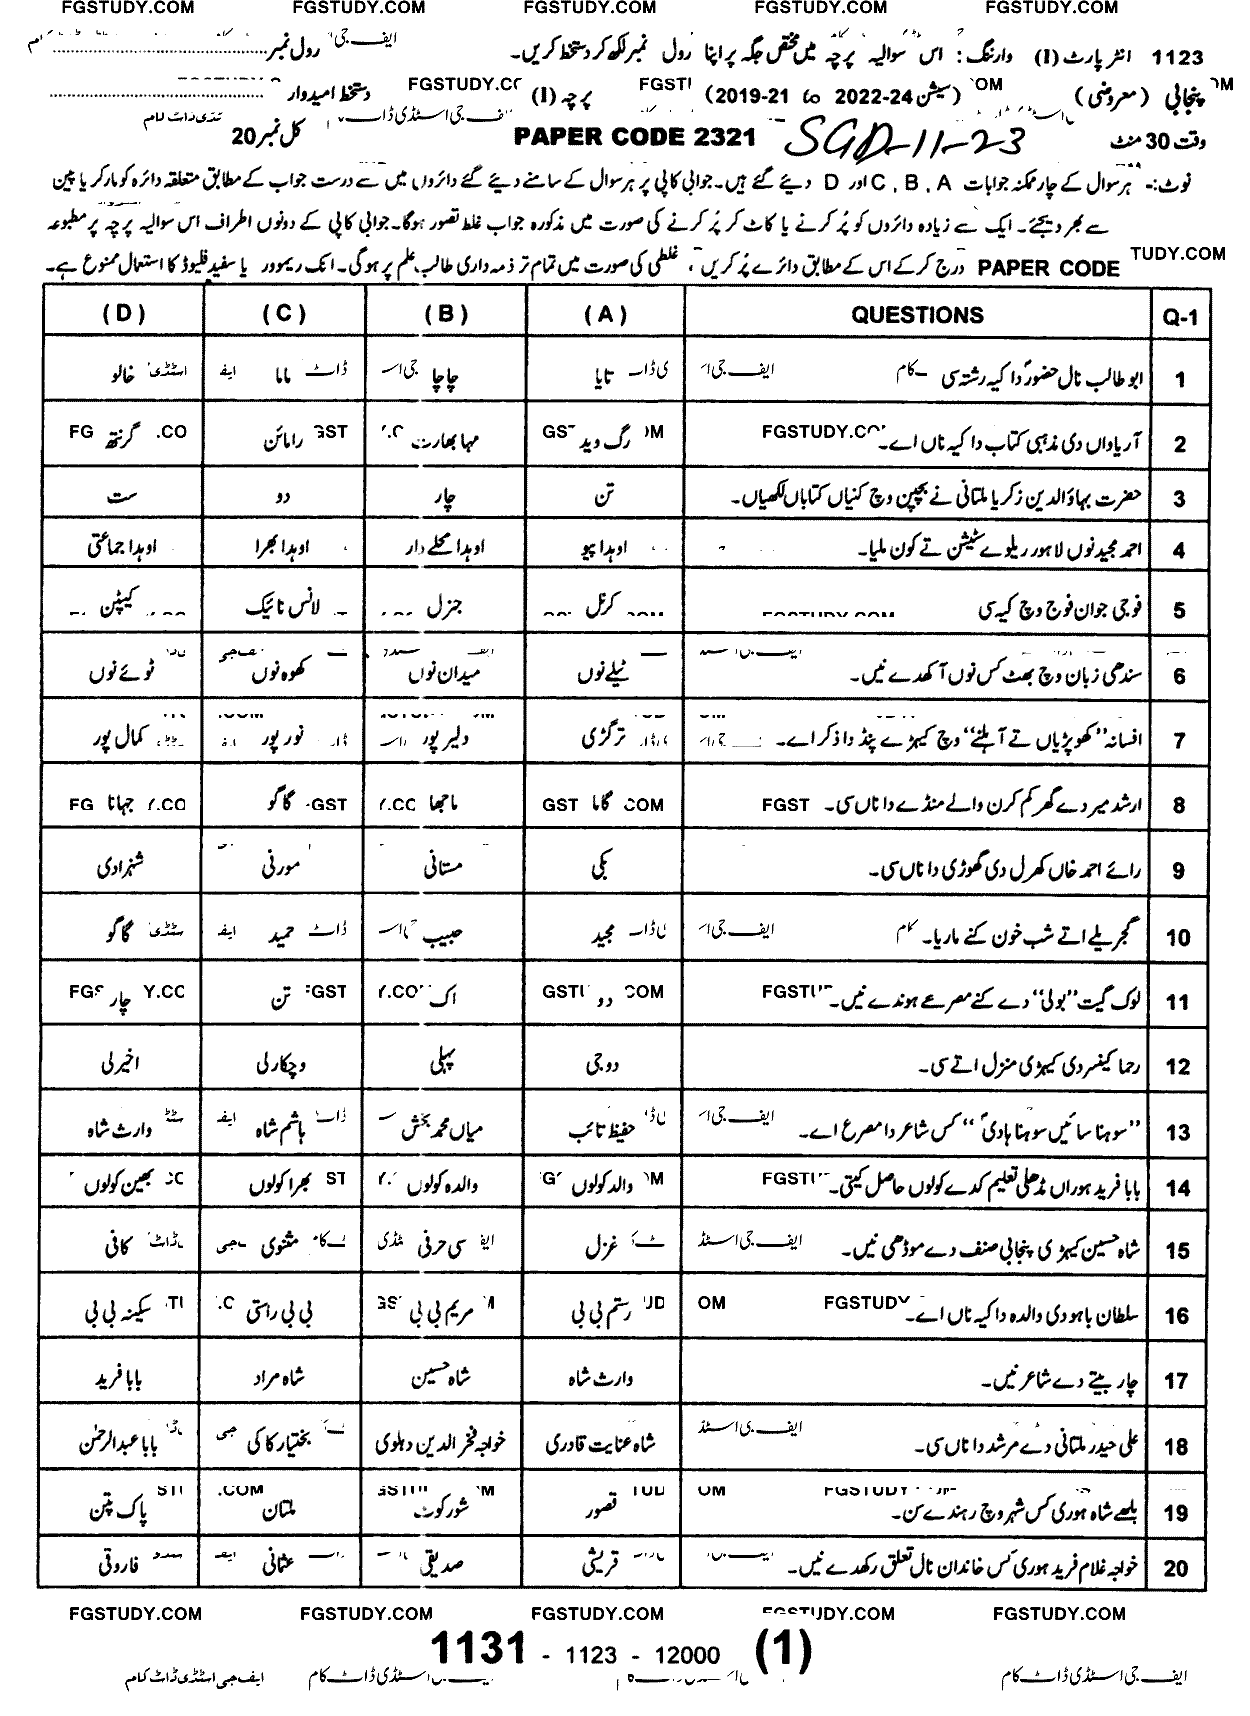 FGSTUDY.COM FGSTUDY.COM FGSTUDY.COM FGSTUDY.COM FGSTUDY.COM
1123 انٹر پارٹ (I) وارننگ: اس سوالیہ پرچہ میں مختص جگہ پر اپنا رول نمبر لکھ کر دستخط کریں۔ رول نمبر
پنجابی (معروضی) (سیشن 2022-24 to 2019-21) پرچہ (I) دستخط امیدوار
وقت 30 منٹ SGD-11-23 PAPER CODE 2321 کل نمبر 20
نوٹ:- ہر سوال کے چار ممکنہ جوابات A ، B ، C اور D دیئے گئے ہیں۔ جوابی کاپی پر ہر سوال کے سامنے دیئے گئے دائروں میں سے درست جواب کے مطابق متعلقہ دائرہ کو مارکر یا پین
سے بھر دیجئے۔ ایک سے زیادہ دائروں کو پُر کرنے یا کاٹ کر پُر کرنے کی صورت میں مذکورہ جواب غلط تصور ہوگا۔ جوابی کاپی کے دونوں اطراف اس سوالیہ پرچہ پر مطبوعہ
PAPER CODE درج کرکے اس کے مطابق دائرے پُر کریں ، غلطی کی صورت میں تمام تر ذمہ داری طالب علم پر ہوگی۔ انک ریموور یا سفید فلیوڈ کا استعمال ممنوع ہے۔
Q-1 QUESTIONS (A) (B) (C) (D)
1 ابو طالب نال حضورؐ دا کیہ رشتہ سی تایا چاچا ماما خالو
2 آریاواں دی مذہبی کتاب دا کیہ ناں اے۔ رگ وید مہا بھارت رامائن گرنتھ
3 حضرت بہاؤالدین زکریا ملتانی نے بچپن وچ کنیاں کتاباں لکھیاں۔ تن چار دو ست
4 احمد مجید نوں لاہور ریلوے سٹیشن تے کون ملیا۔ اوہدا پیو اوہدا محلے دار اوہدا بھرا اوہدا جماعتی
5 فوجی جوان فوج وچ کیہ سی کرنل جنرل لانس نائیک کیپٹن
6 سندھی زبان وچ بھٹ کس نوں آکھدے نیں۔ ٹیلے نوں میدان نوں کھوہ نوں ٹوئے نوں
7 افسانہ "کھوپڑیاں تے آہلنے" وچ کیہڑے پنڈ دا ذکر اے۔ ترگڑی دلیر پور نور پور کمال پور
8 ارشد میر دے گھر کم کرن والے منڈے دا ناں سی۔ گاما ماجھا گاگو جہانا
9 رائے احمد خاں کھرل دی گھوڑی دا ناں سی۔ بکی مستانی مورنی شہزادی
10 گجریلے اتے شب خون کنے ماریا۔ مجید حبیب حمید گاگو
11 لوک گیت "بولی" دے کنے مصرعے ہوندے نیں۔ دو اک تن چار
12 رحما کینسر دی کیہڑی منزل اتے سی۔ دوجی پہلی وچکارلی اخیرلی
13 "سوہنا سائیں سوہنا ہادیؐ" کس شاعر دا مصرع اے۔ حفیظ تائب میاں محمد بخش ہاشم شاہ وارث شاہ
14 بابا فرید ہوراں مڈھلی تعلیم کدے کولوں حاصل کیتی۔ والد کولوں والدہ کولوں بھرا کولوں بھین کولوں
15 شاہ حسین کیہڑی پنجابی صنف دے موڈھی نیں۔ غزل سی حرفی مثنوی کافی
16 سلطان باہو دی والدہ دا کیہ ناں اے۔ رستم بی بی مریم بی بی بی بی راستی سکینہ بی بی
17 چار بیتے دے شاعر نیں۔ وارث شاہ شاہ حسین شاہ مراد بابا فرید
18 علی حیدر ملتانی دے مرشد دا ناں سی۔ شاہ عنایت قادری خواجہ فخر الدین دہلوی بختیار کاکی بابا عبدالرحمٰن
19 بلھے شاہ ہوری کس شہر وچ رہندے سن۔ قصور شورکوٹ ملتان پاک پتن
20 خواجہ غلام فرید ہوری کس خاندان نال تعلق رکھدے نیں۔ قریشی صدیقی عثمانی فاروقی
FGSTUDY.COM FGSTUDY.COM FGSTUDY.COM FGSTUDY.COM FGSTUDY.COM
1131 - 1123 - 12000 (1)
ایف جی اسٹڈی ڈاٹ کام